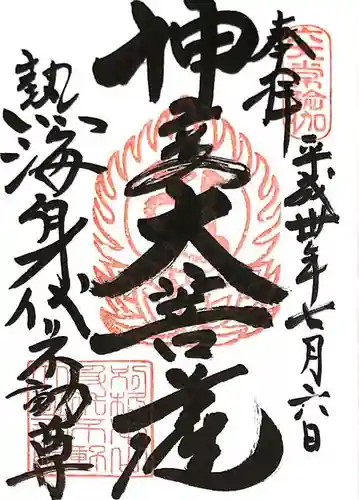 奉拝
平成卅年七月六日
神変大菩薩
熱海身代不動尊